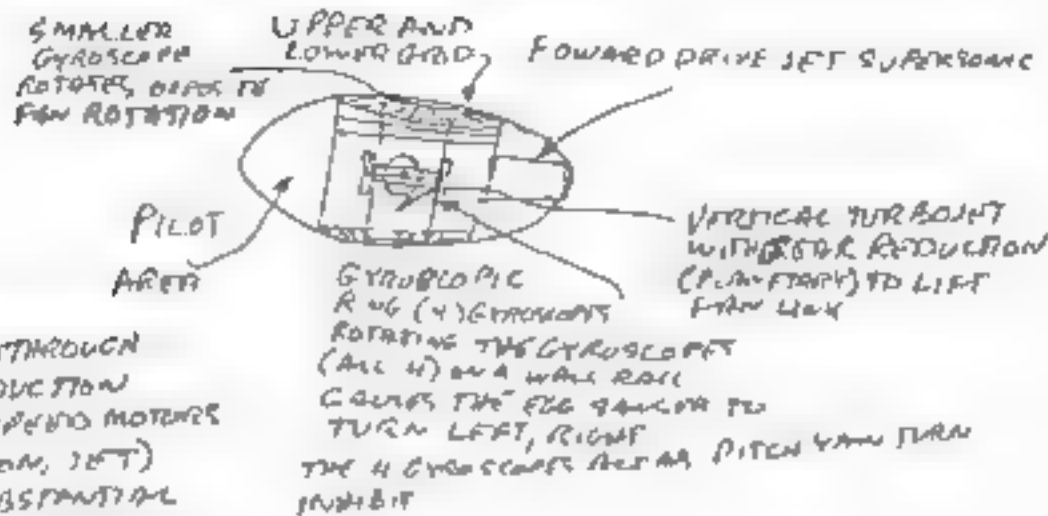 SMALLER
GYROSCOPE
ROTATES OPPOSITE
FAN ROTATION
UPPER AND
LOWER GRID
FOWARD DRIVE JET SUPERSONIC
PILOT
AREA
VERTICAL TURBOJET
WITH GEAR REDUCTION
(PLANETARY) TO LIFT
FAN
GYROSCOPIC
RING (4) GYROSCOPES
ROTATING THE GYROSCOPES
(ALL 4) ON A WALL RAIL
CAUSES THE EGG TO
TURN LEFT, RIGHT
THE 4 GYROSCOPES PITCH TURN
INHIBIT
THROUGH
DUCTION
MOTORS
ON, JET)
BSTANTIAL